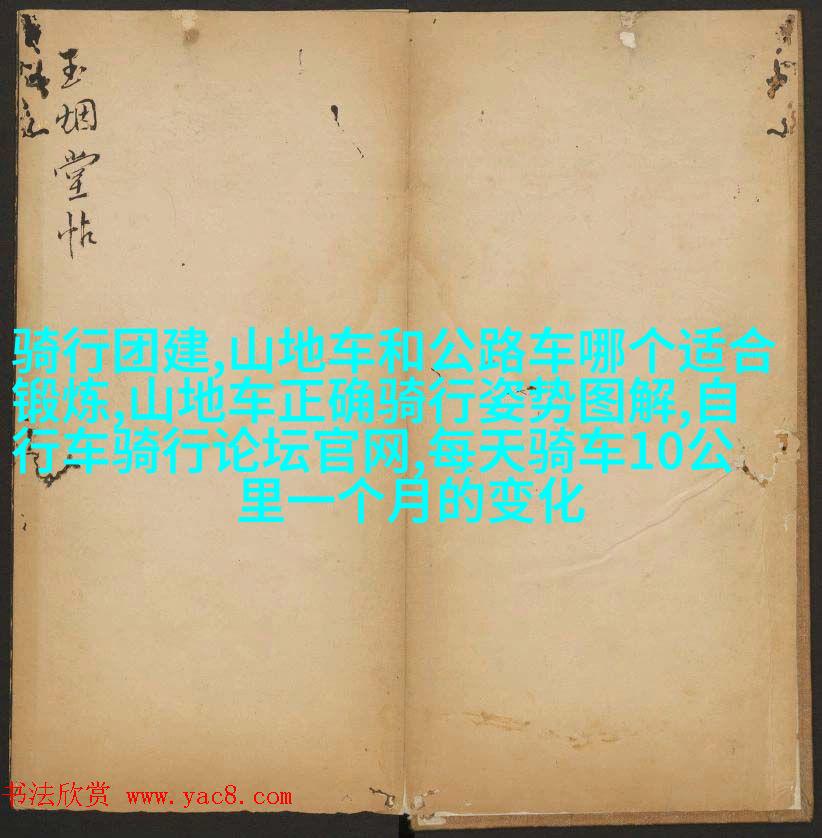 玉烟堂帖
骑行团建,山地车和公路车哪个适合
锻炼,山地车正确骑行姿势图解,自
行车骑行论坛官网,每天骑车10公
里一个月的变化
书法欣赏 www.yac8.com